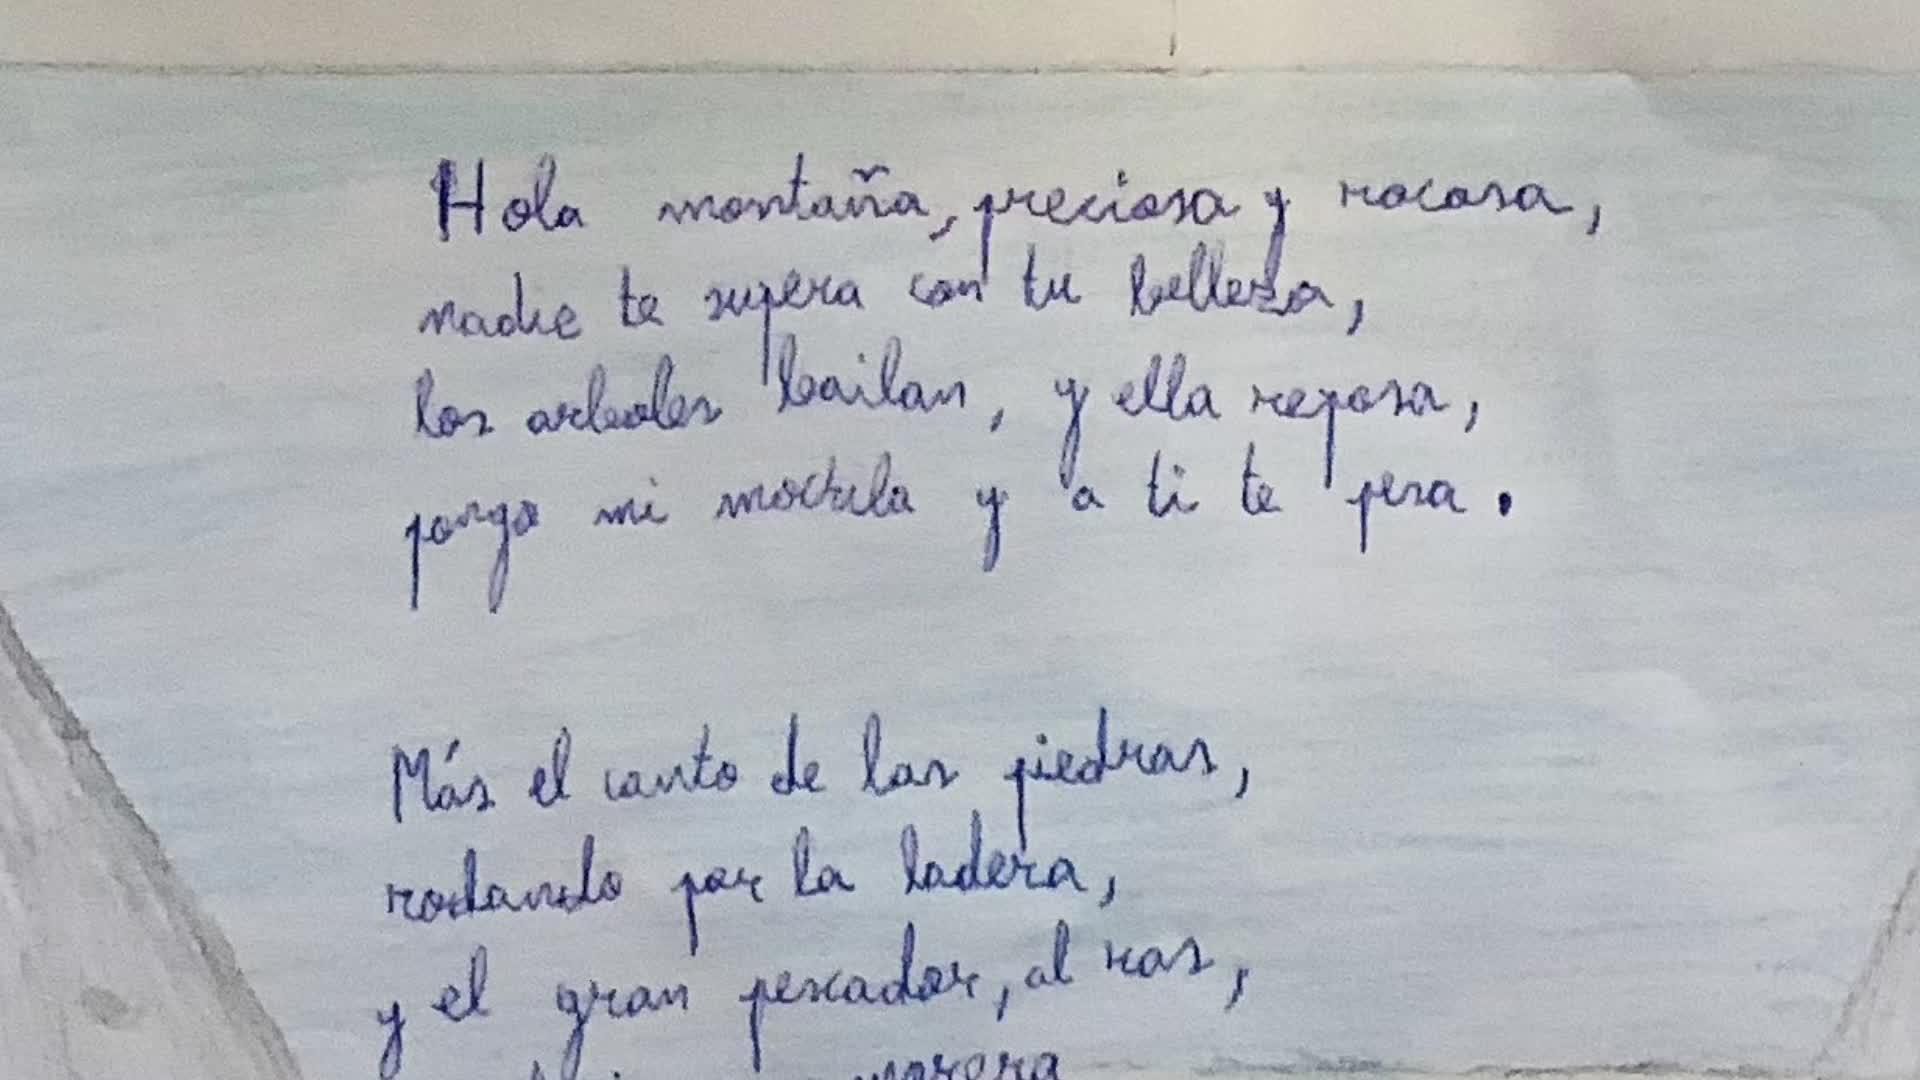 Hola montaña, preciosa y rocosa,
nadie te supera con tu belleza,
los arboles bailan, y ella reposa,
pongo mi mochila y a ti te pesa.
Más el canto de las piedras,
rodando por la ladera,
y el gran pescador, al ras,